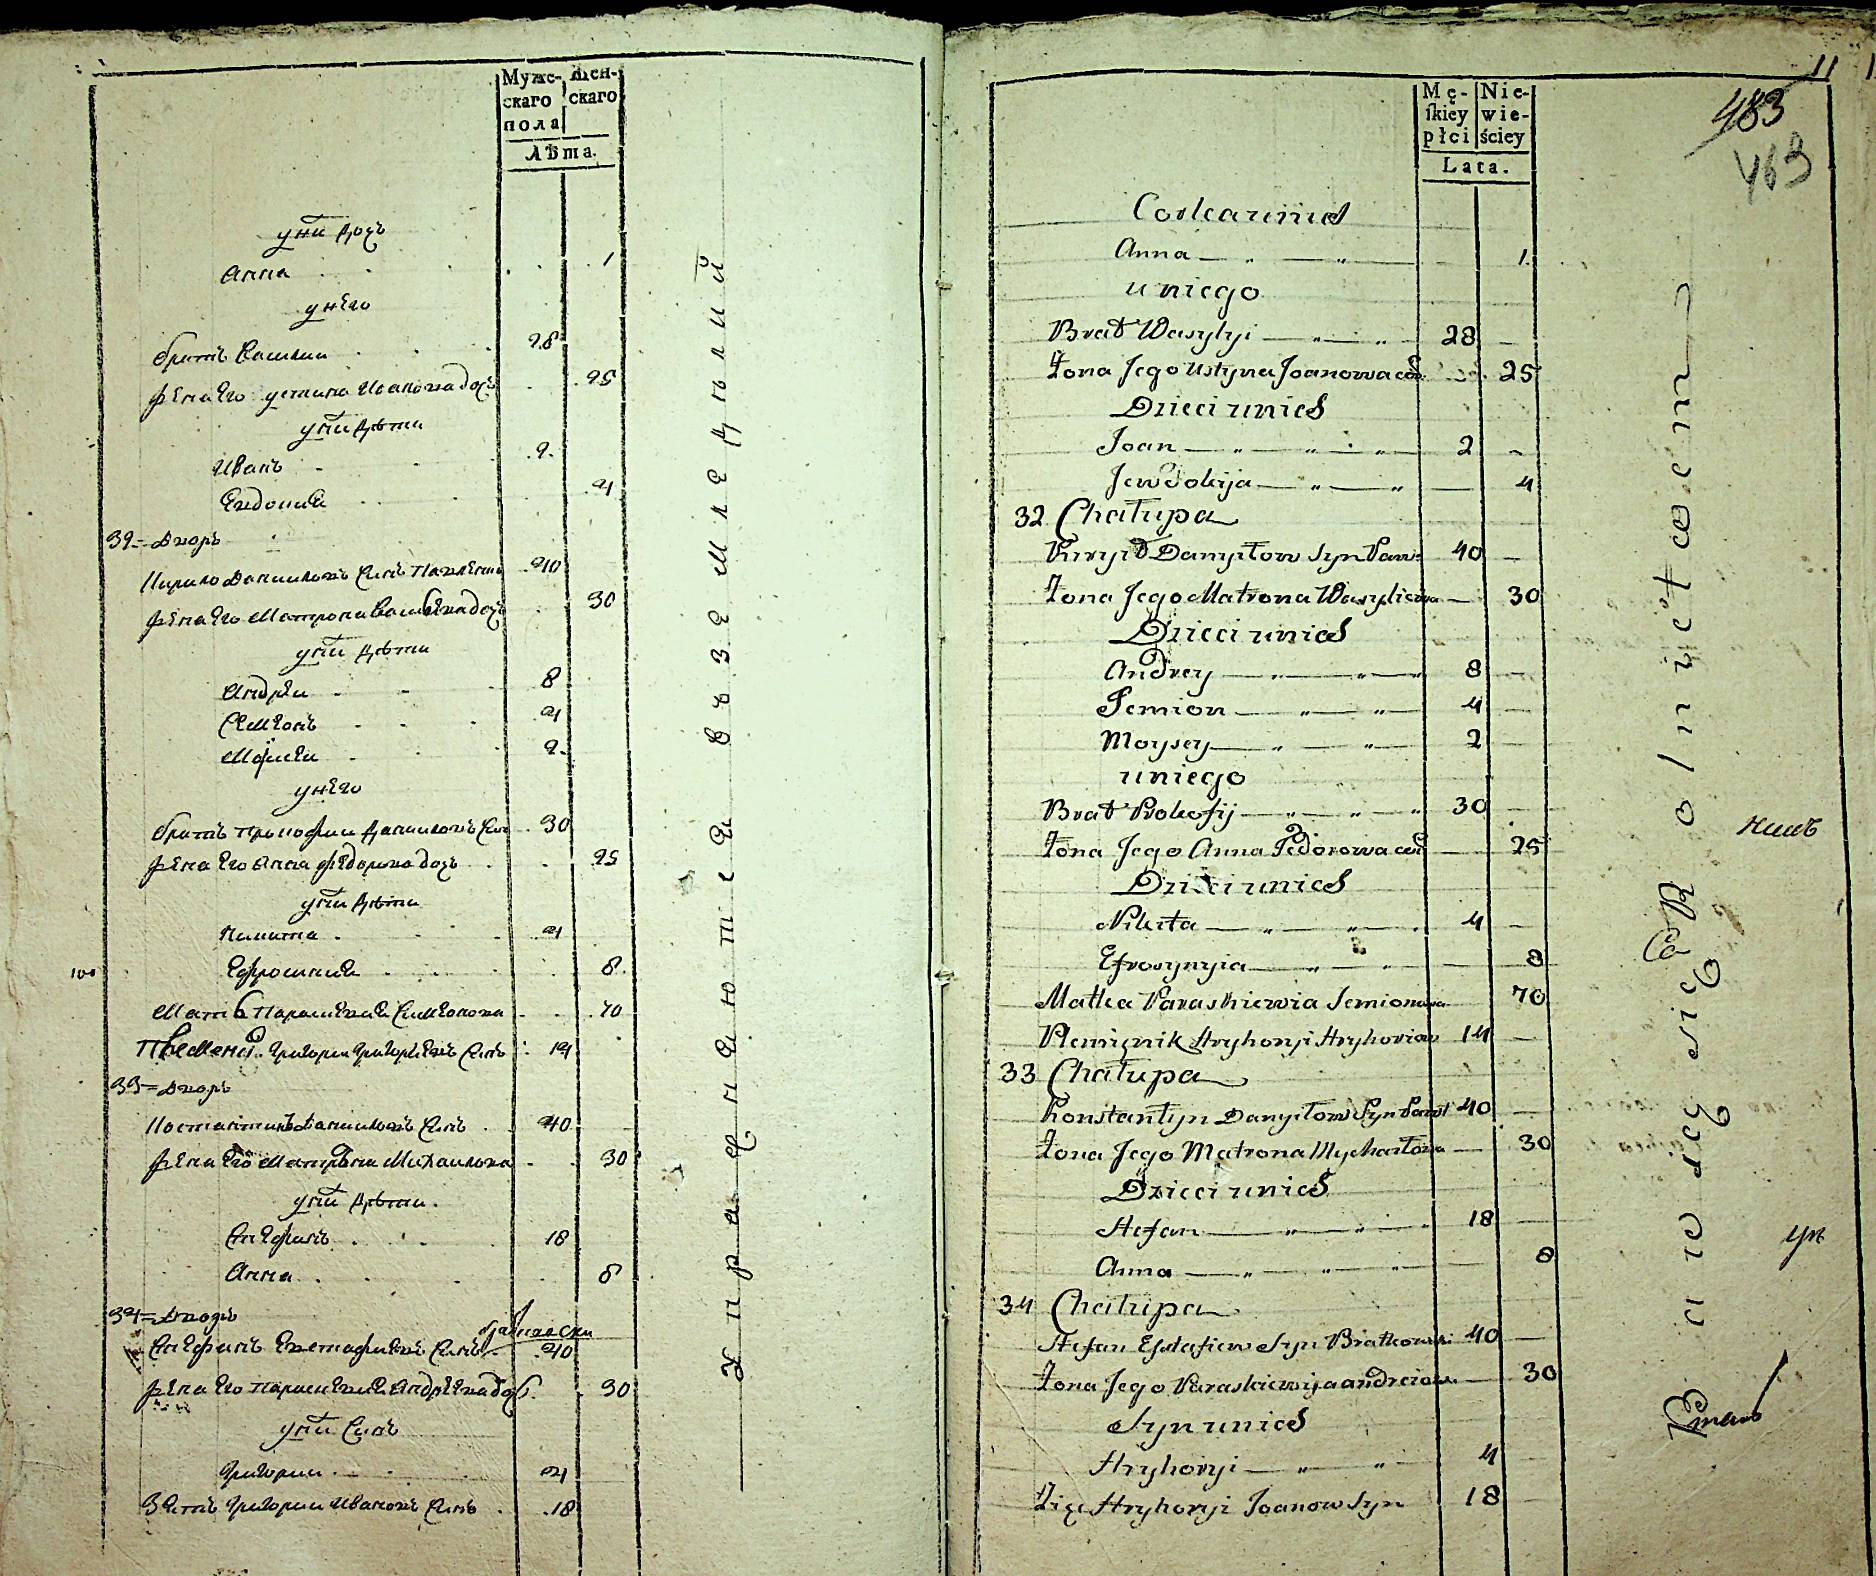 Муже-
скаго
пола
Жен-
скаго
Лѣта.
у ни дочъ
Анна 1
у него
братъ Василии 28
жена его устина Иванова дочъ 25
у ни дѣти
Иванъ 2
Евдокия 4
32 = Дворъ
Кирило Даниловъ синъ 40
жена его Матрона Василева дочъ 30
у ни дѣти
Андреи 8
Семионъ 4
Моисеи 2
у него
братъ Прокофии Даниловъ син 30
жена его Анна Федорова дочъ 25
у ни дѣти
Никита 4
100
Ефросиния 8
Мать Параскевия Семионова 70
Племені. Григории Григориевъ синъ 14
33 = Дворъ
Костантинъ Даниловъ синъ 40
жена его Матрона Михаилова 30
у ни дѣти.
Стефанъ 18
Анна 8
34 = Дворъ
Стефанъ Евстафиевъ синъ 40
жена его Параскевия Андреева доч. 30
у ни синъ
Григории 4
Зять Григории Ивановъ синъ 18
упражняются въ земледѣлии
11
483
463
Mę-
skiey
płci
Nie-
wie-
ściey
Lata.
Corka unich
Anna 1
u niego
Brat Wasylyi 28
Żona Jego Ustyna Joanowa cor 25
Dzieci unich
Joan 2
Jewdokija 4
32 Chałupa
Kirył Danyłow syn 40
Żona Jego Matrona Wasyliewa 30
Dzieci unich
Andrey 8
Semion 4
Moysey 2
u niego
Brat Prokofij 30
Żona Jego Anna Fedorowa cor 25
Dzieci unich
Nikita 4
Efrosynyia 8
Matka Paraskiewia Semionowa 70
Plemięnik Hryhoryi Hryhoriow 14
33 Chałupa
Konstantyn Danyłow Syn 40
Żona Jego Matrona Mychaiłowa 30
Dzieci unich
Stefan 18
Anna 8
34 Chałupa
Stefan Efstafiew Syn Bratkowski 40
Żona Jego Paraskiewija andreiowa 30
Syn unich
Hryhoryi 4
Zięć Hryhoryi Joanow Syn 18
Bawią się Rolnictwem